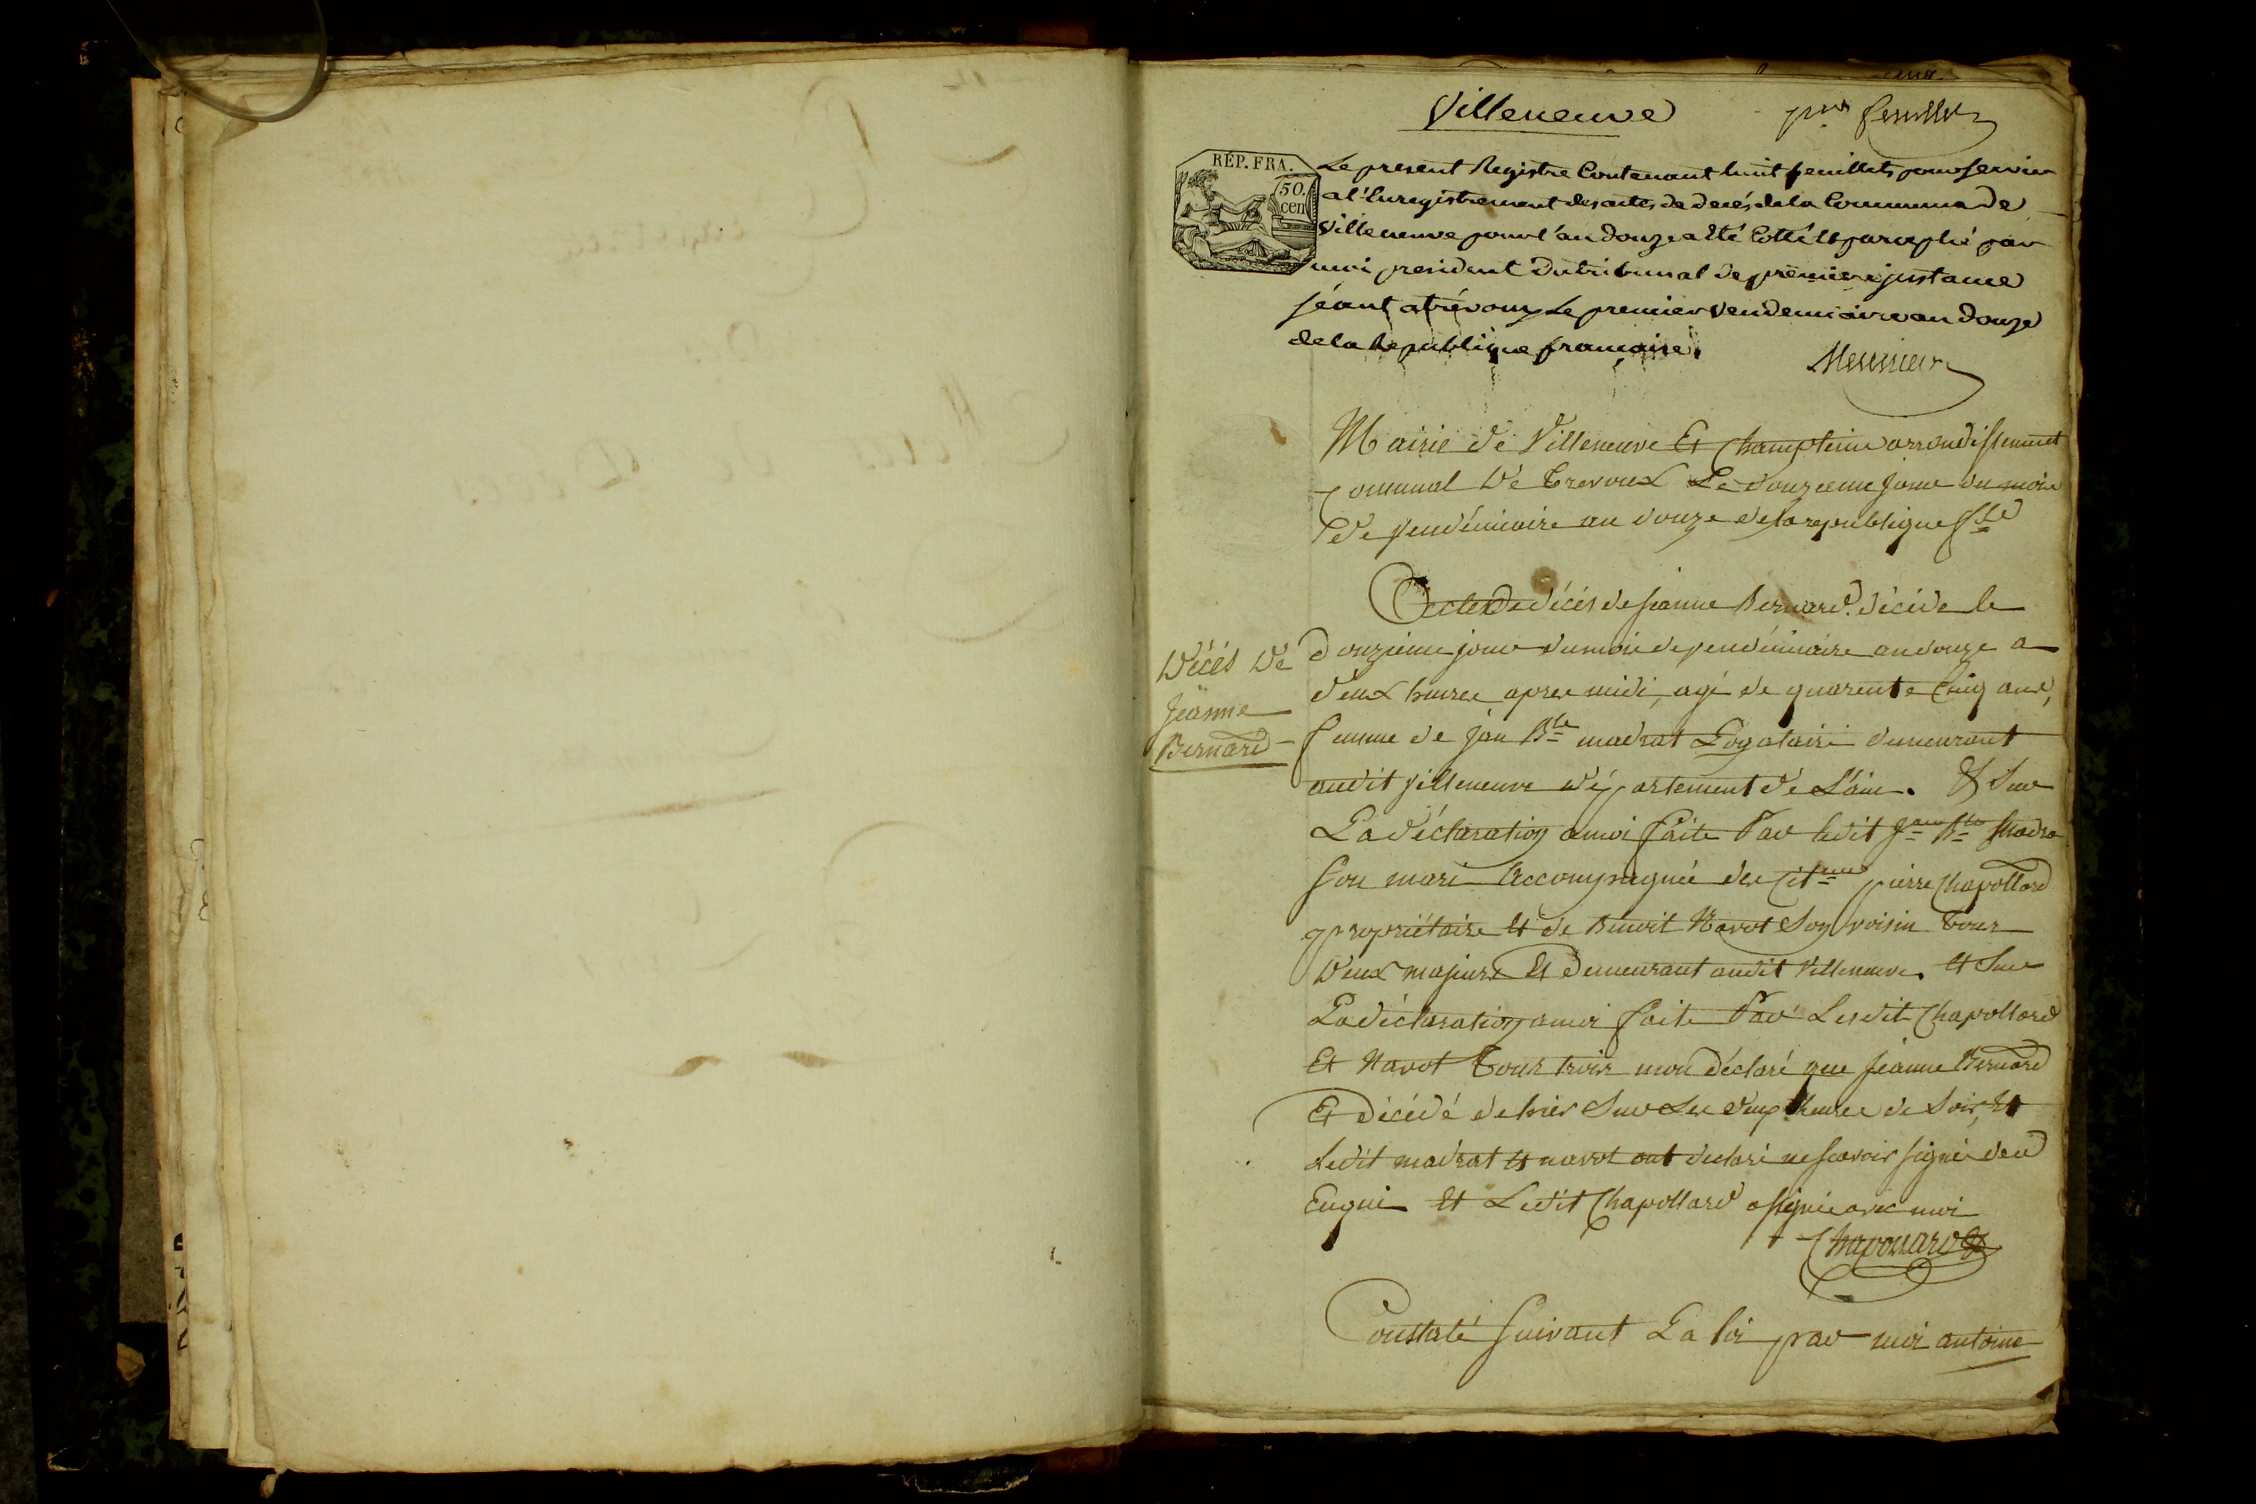 Villeneuve
pr feuillet
RÉP. FRA.
50.
cen
Le present Registre Contenant huit feuillets pour servir
a l'Enregistrement des actes de decés de la Commune de
Villeneuve pour l'an douze a été Cotté et paraphé par
moi president du tribunal de premiere jnstance
séant a trévoux Le premier Vendemiaire an douze
de la Republique francaise.
Meunier
Mairie de Villeneuve Et Champteine arrondissement
Communal de Trevoux Le douzieme Jour du mois
de vendémiaire an douze de la republique
Acte de décés de jeanne Bernard. décéde le
Décés de
Jeanne
Bernard
douzieme jour du mois de vendémiaire an douze a
deux heures apres midi, agé de quarente Cinq ans,
femme de jan Bte madrat demeurant
audit villeneuve département de L'ain. & Sur
La déclaration a moi faite Par ledit Jan Bte Madra
son mari Accompagnée des Cit pierre Chapollard
propriétaire et de Benoit Navot Son voisin tous
deux majeurs Et demeurant audit Villeneuve. et Sur
La déclaration a moi faite Par Lesdit Chapollard
Et Navot tous trois mon déclaré que jeanne Bernard
Et décédé de hier Sur Les deux heures de Soir, Et
Ledit madrat et navot ont declaré ne scavoir signé deu
Enqui Et Ledit Chapollard a signé avec moi
Chapollard
Constaté suivant La loi par moi antoine